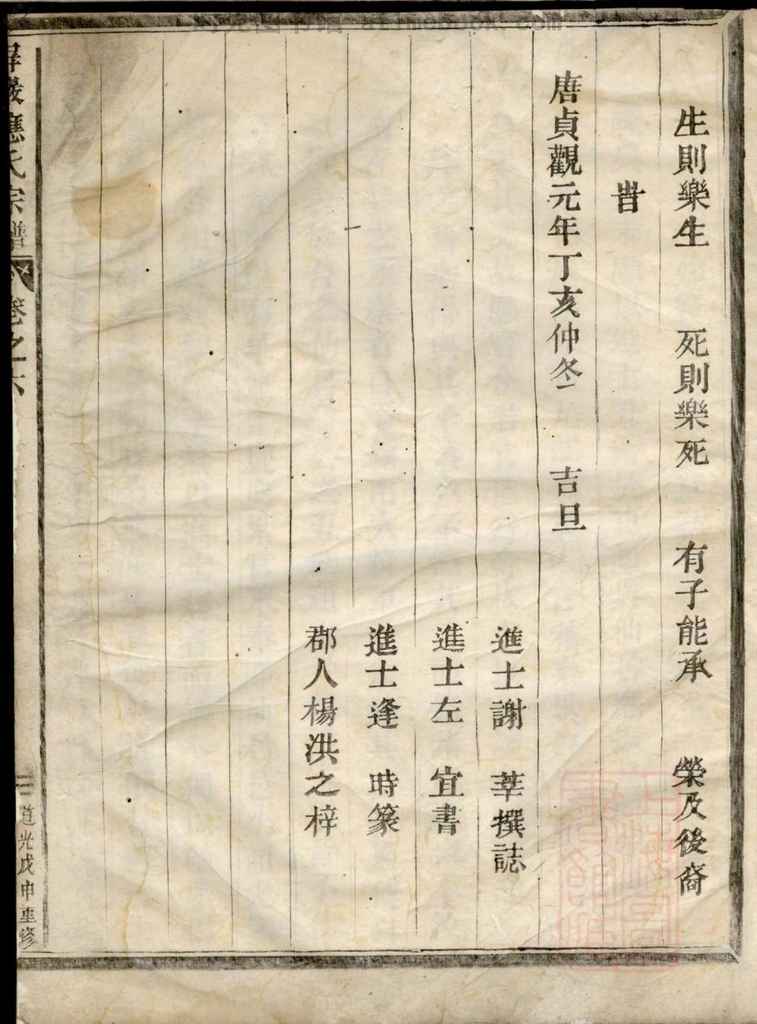 生則樂生 死則樂死 有子能承 榮及後裔
旹
唐貞觀元年丁亥仲冬 吉旦
進士謝 莘撰誌
進士左 宜書
進士逢 時篆
郡人楊洪之梓
應氏宗譜 卷之六
道光戊申重修